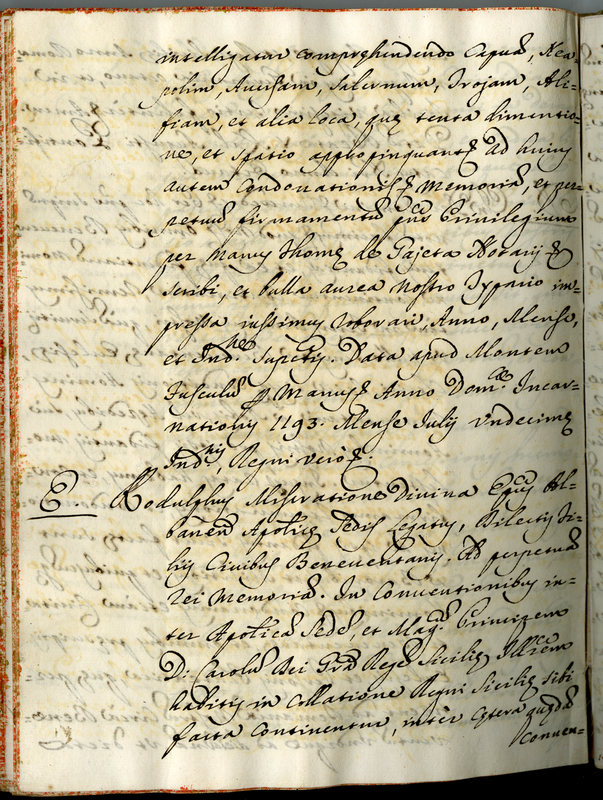 intelligatur comprehendendo Capuã, Nea=
polim, Aversam, Salernum, Trojam, Ali=
fiam, et alia loca, quę tenta dimentio=
ne, et spatio appropinquant&. Ad huius
autem Condonationis & Memoriã, et per=
petuũ firmamentũ pñs Privilegium
per manus Thomę de Gajeta Notarij &
scribi, et bulla aurea nostro Typario im=
pressa iussimus roborari, Anno, Mense,
et Ind.ne supctis. Data apud Montem
Fusculũ p Manus & Anno Dom.cæ Incar=
nationis 1193. Mense Julij undecimę
Ind.nis, Regni verò &.
E. Rodulphus Miseratione Divina Epus Al=
banen. Aplicę Sedis Legatus, Dilectis fi=
liis Civibus Beneventanis. Ad perpetuã
rei memoriã. In Conventionibus in=
ter Aplicã Sedẽ, et Mag.cum Principem
D. Carolũ Dei Grã Regẽ Sicilię Illrem
habitis in collatione Regni Sicilię sibi
facta continentur, inter cętera quędã
Conven=